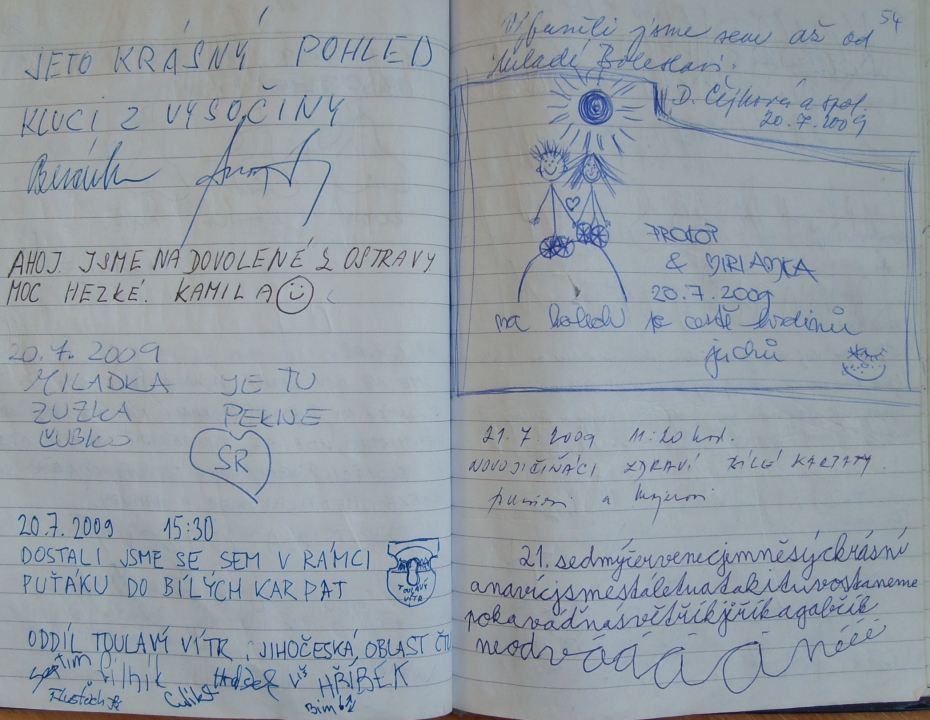 JETO KRÁSNÝ POHLED
KLUCI Z VYSOČINY
AHOJ. JSME NA DOVOLENÉ Z OSTRAVY
MOC HEZKÉ. KAMILA
20.7.2009
MILADKA JE TU
ZUZKA PEKNE
ĽUBKO
SR
20.7.2009 15:30
DOSTALI JSME SE SEM V RÁMCI
PUŤÁKU DO BÍLÝCH KARPAT
TOULAVÝ
VÍTR
ODDÍL TOULAVÝ VÍTR, JIHOČESKÁ OBLAST
HŘÍBEK
54
jsme sem až od
Mladé Boleslavi.
D. Čejková a spol.
20.7.2009
PROKOP
& MIRIAMKA
20.7.2009
na kolech po cestě hrdinů
juchů
21.7.2009 11:20 hod.
NOVOJIČIŇÁCI ZDRAVÍ BÍLÉ KARPATY.
21. sedmýčervenecjemněsýckrásní
anavícjsmestáletuatakituvostaneme
pokavádnásvětříkjříkagabřík
neodvááááánééé